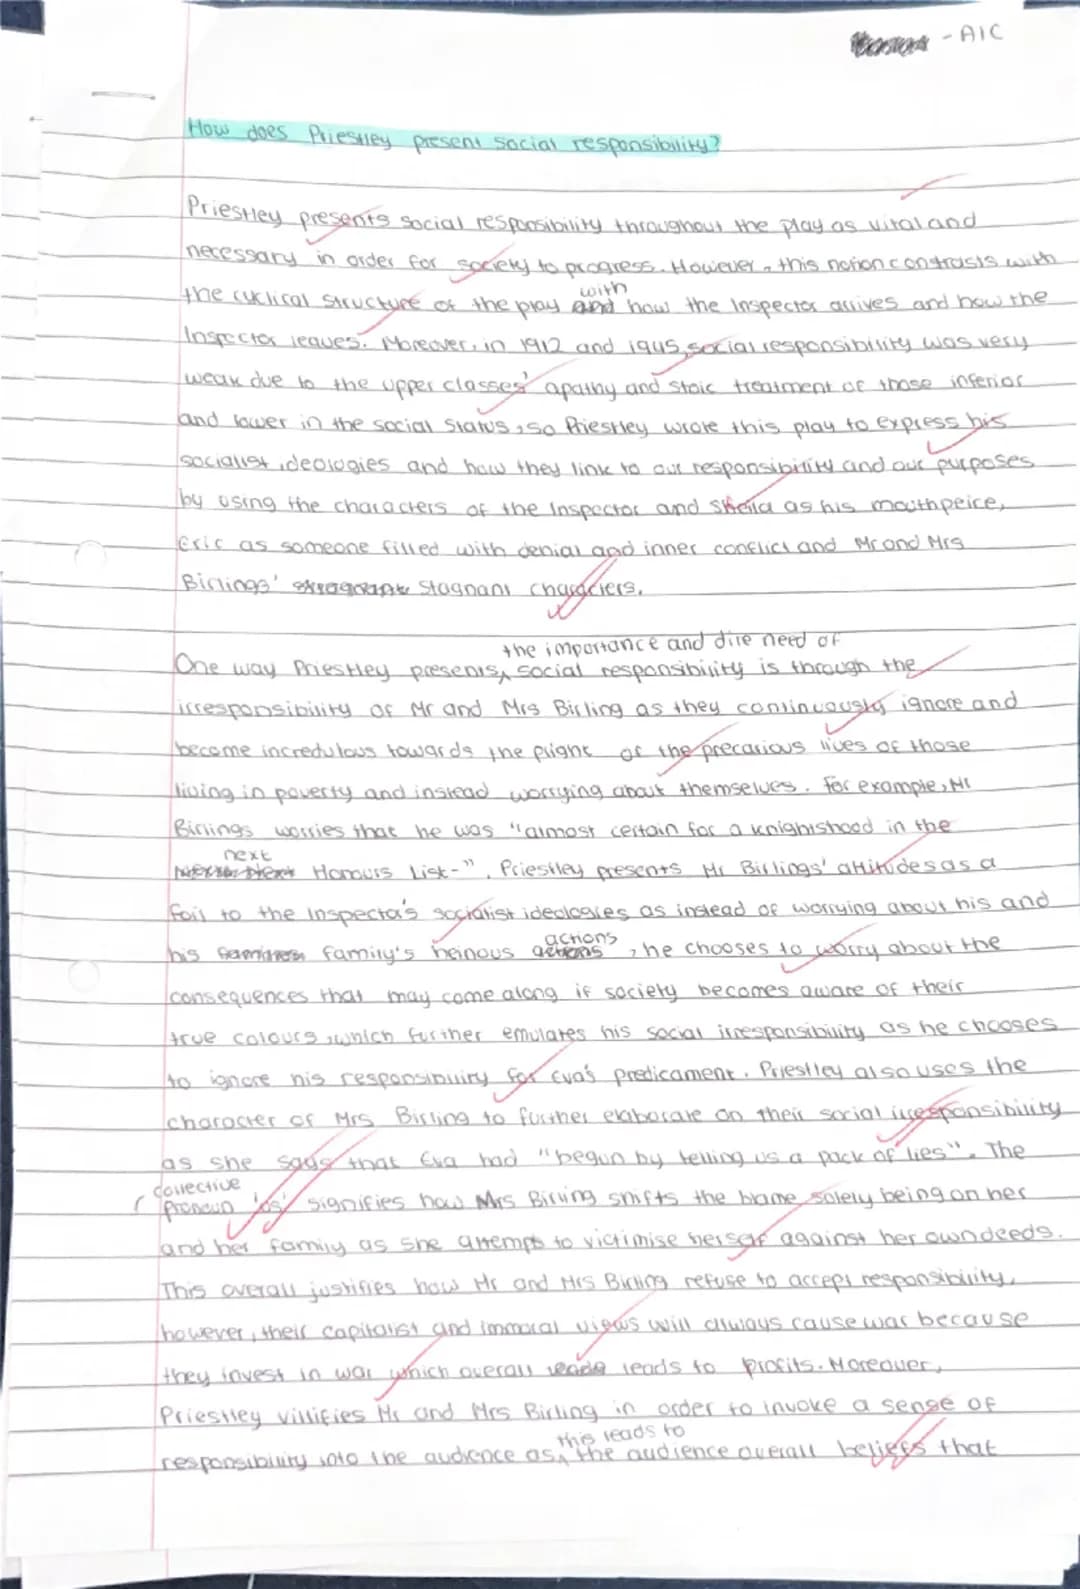 - A1C
How does Priestley present social responsibility?
Priestley presents social responsibility throughout the play as vital and
necessary in order for society to progress. However, this notion contrasts with
the cyclical structure of the play with how the Inspector arrives and how the
Inspector leaves. Moreover, in 1912 and 1945, social responsibility was very
weak due to the upper classes' apathy and stoic treatment of those inferior
and lower in the social status, so Priestley wrote this play to express his
socialist ideologies and how they link to our responsibility and our purposes
by using the characters of the Inspector and Sheila as his mouthpeice,
Eric as someone filled with denial and inner conflict and Mr and Mrs
Birlings' stagnant characters.
the importance and dire need of
One way Priestley presents social responsibility is through the
irresponsibility of Mr and Mrs Birling as they continuously ignore and
become incredulous towards the plight of the precarious lives of those
living in poverty and instead worrying about themselves. For example, Mr
Birlings worries that he was "almost certain for a knightshood in the
next
Honours List-". Priestley presents Mr Birlings' attitudes as a
foil to the Inspector's socialist ideologies as instead of worrying about his and
actions
his family's heinous actions, he chooses to worry about the
consequences that may come along if society becomes aware of their
true colours, which further emulates his social irresponsibility as he chooses
to ignore his responsibility for Eva's predicament. Priestley also uses the
character of Mrs Birling to further elaborate on their social irresponsibility
as she says that Eva had "begun by telling us a pack of lies". The
collective
pronoun 'us' signifies how Mrs Birling shifts the blame solely being on her
and her family as she attempts to victimise herself against her own deeds.
This overall justifies how Mr and Mrs Birling refuse to accept responsibility,
however, their capitalist and immoral views will always cause war because
they invest in war which overall leads to profits. Moreover,
Priestley villifies Mr and Mrs Birling in order to invoke a sense of
this leads to
responsibility into the audience as the audience overall beliefs that